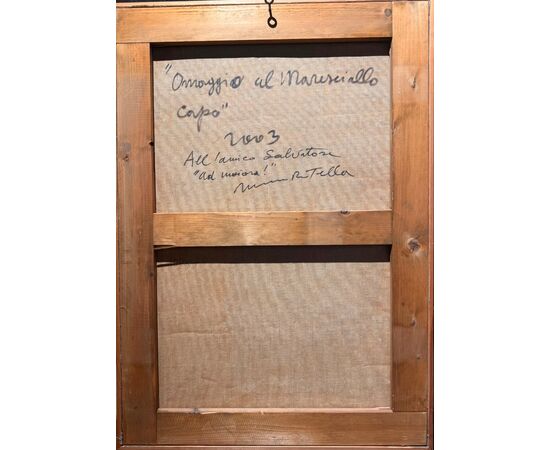 "Omaggio al Maresciallo
Capo"
2003
All'amico Salvatore
"ad maiora!"
Mimmo Rotella